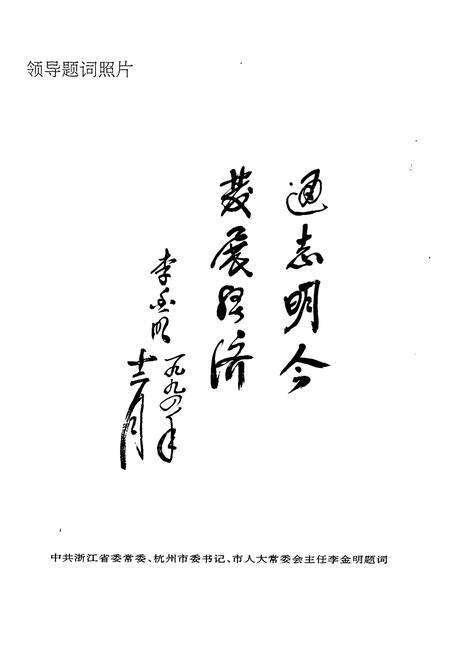 领导题词照片
通志明今
发展经济
李金明
一九九四年
十二月
中共浙江省委常委、杭州市委书记、市人大常委会主任李金明题词